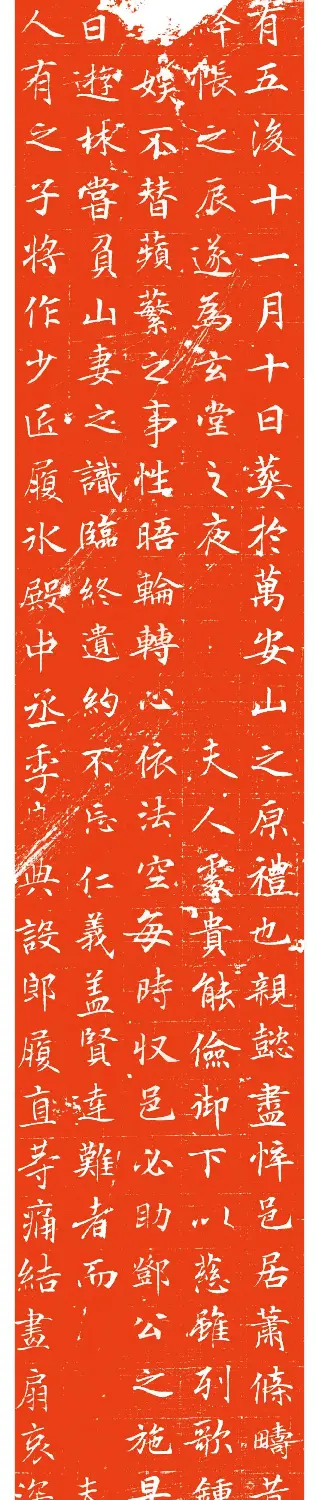 有五後十一月十日葬於萬安山之原禮也親懿盡悴邑居蕭條疇昔
帳之辰遂為玄堂之夜 夫人處貴能儉御下以慈雖列歌鍾
娛不替蘋蘩之事性晤輪轉心依法空每時收邑必助鄧公之施早
日遊林嘗負山妻之識臨終遺約不忘仁義盖賢達難者而 夫
人有之子將作少匠履冰殿中丞季 典設郎履直等痛結畫扇哀深